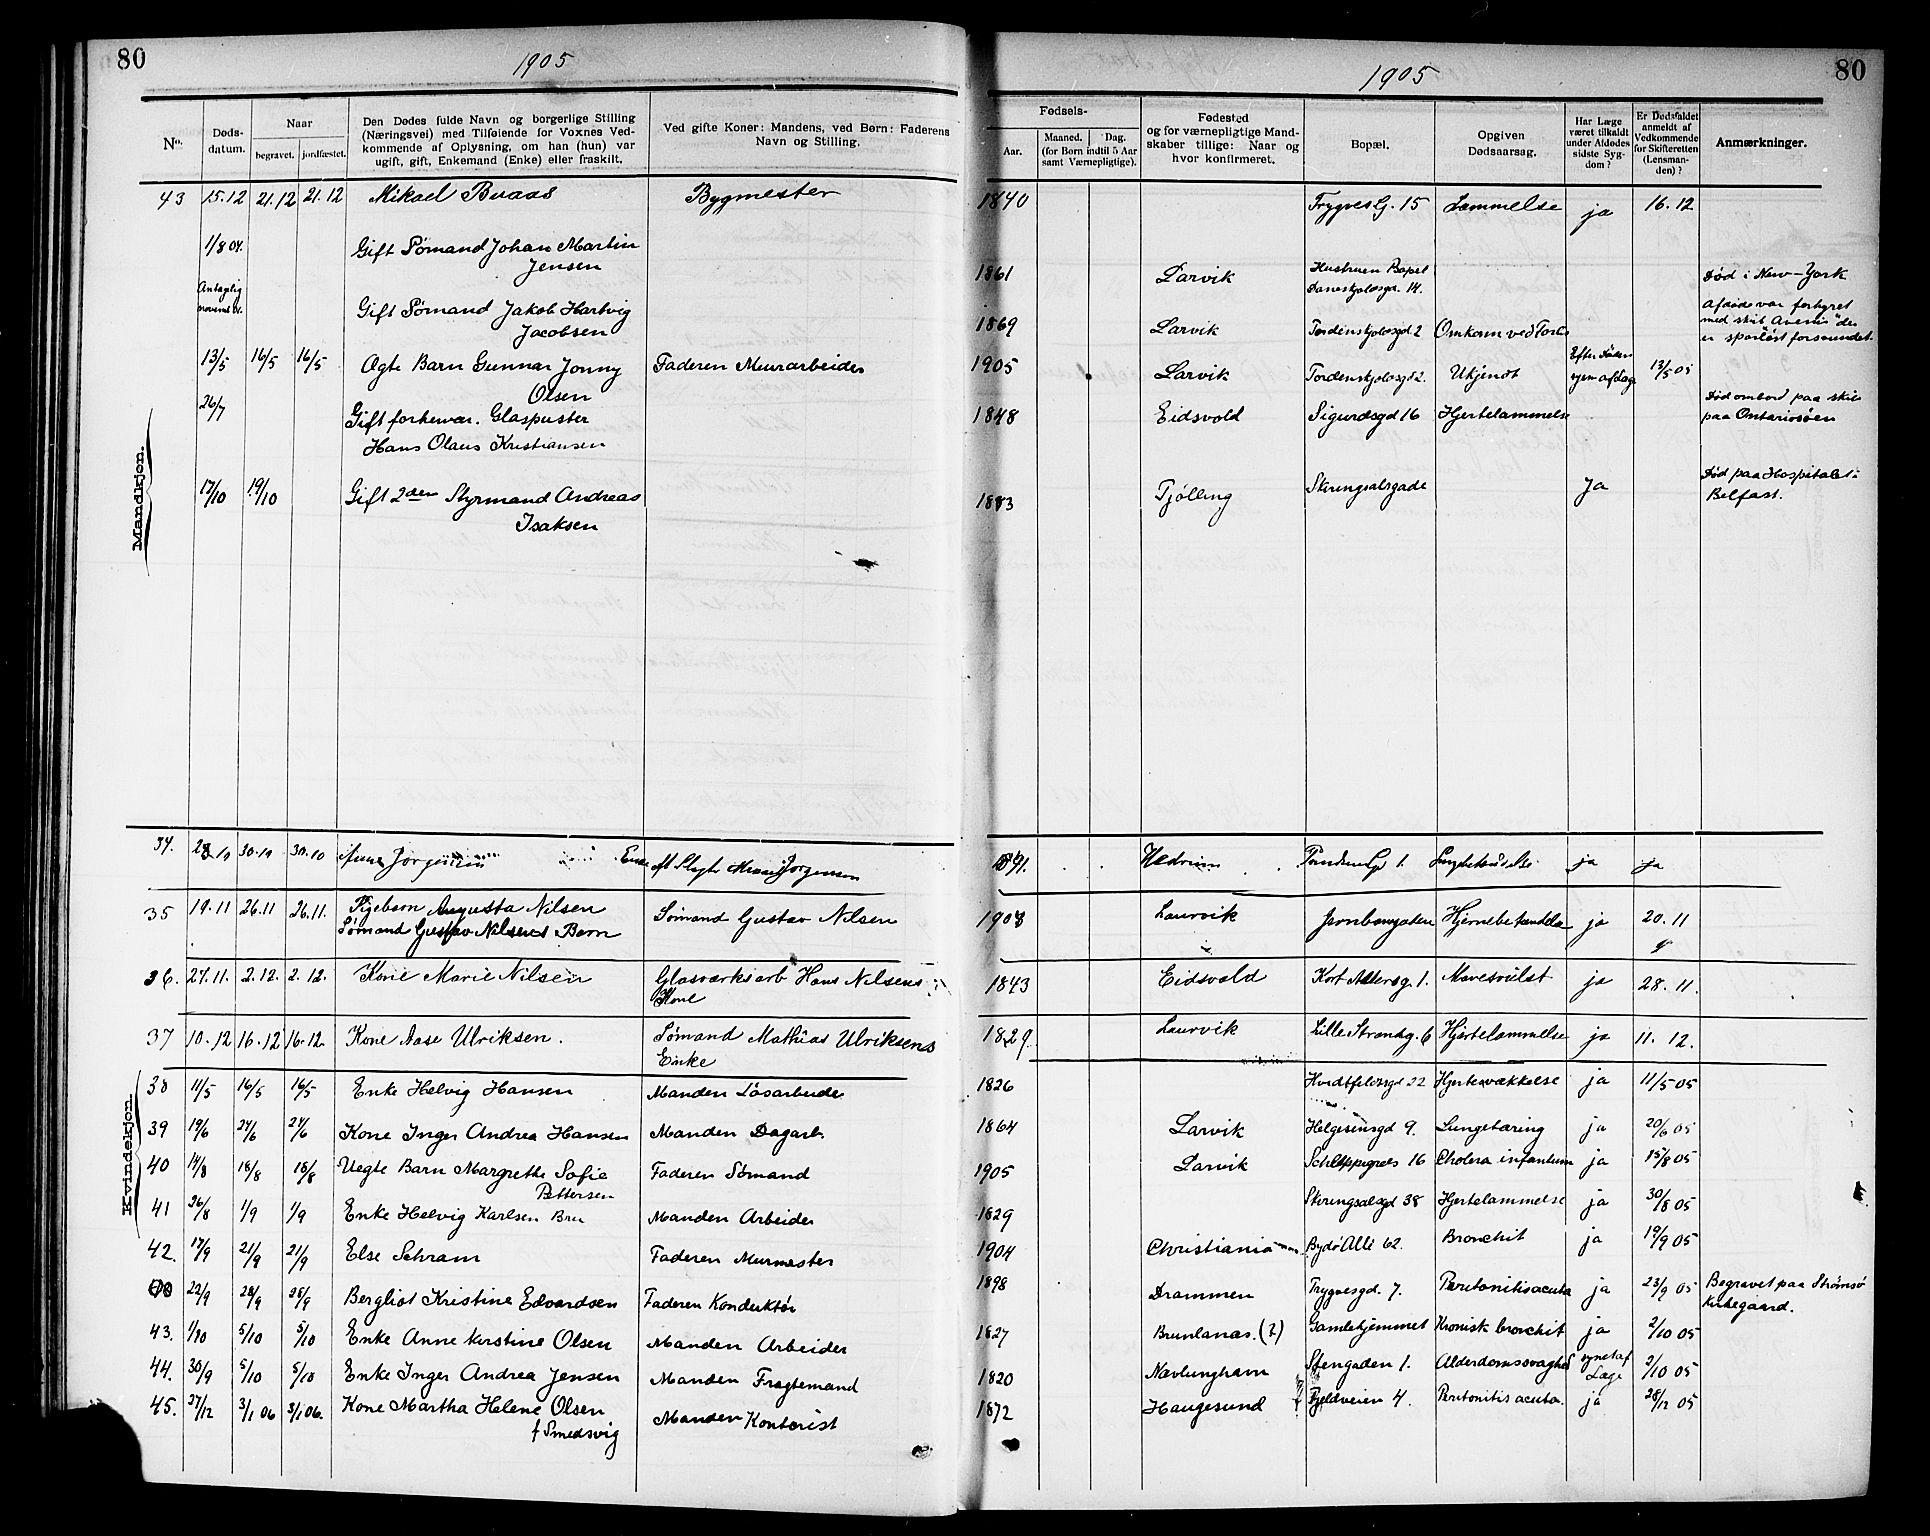 80
1905
No.
Døds-
datum.
Naar
begravet.
jordfæstet.
Den Dødes fulde Navn og borgerlige Stilling
(Næringsvei) med Tilføiende for Voxnes Ved-
kommende af Oplysning, om han (hun) var
ugift, gift, Enkemand (Enke) eller fraskilt.
Ved gifte Koner: Mandens, ved Børn: Faderens
Navn og Stilling.
1905
80
Fødsels-
Aar.
Maaned. Dag.
(for Børn indtil 5 Aar
samt Værnepligtige).
Fødested
og for værnepligtige Mand-
skaber tillige: Naar og
hvor konfirmeret.
Bopæl.
Opgiven
Dødsaarsag.
Har Læge
været tilkaldt
under Afdødes
sidste Syg-
dom?
Er Dødsfaldet
anmeldt af
Vedkommende
for Skifteretten
(Lensman-
den)?
Anmærkninger.
Mandkjøn.
43 15.12 21.12 21.12 Mikael Buaas Bygmester 1840 Trygves G. 15 Lammelse ja 16.12
1/8 04. Gift Sømand Johan Martin
Jensen 1861 Larvik Hustruen Bopel
Daneskjoldsgd. 14. Død i New-York
Antaglig
Gift Sømand Jakob Hartvig
Jacobsen 1869 Larvik Tordenskjoldsgd 2 Omkom ved Forlis
Afdøde var forhyret
med skib Avenis der
er sporløst forsvundet
13/5 16/5 16/5 Ægte Barn Gunnar Jonny
Olsen Faderen Murarbeider 1905 Larvik Tordenskjoldsgd 2. Ukjendt 13/5 05
26/7 Gift forhenvær. Glaspuster
Hans Olaus Kristiansen 1848 Eidsvold Sigurdsgd 16 Hjertelammelse
Død ombord paa skib
paa Ontariosøen
17/10 19/10 Gift 2den Styrmand Andreas
Isaksen 1883 Tjølling Skiringsalsgade Ja
Død paa Hospitalet i
Belfast.
Kvindekjøn.
34. 28.10 30.10 30.10 Anne Jørgensen Enke Jørgensen Hedrum 1. ja ja
35 19.11 26.11 26.11. Pigebarn Augusta Nilsen
Sømand Gustav Nilsens Barn Sømand Gustav Nilsen 1903 Laurvik Jernbanegaden Hjernebetændelse ja 20.11
36. 27.11. 2.12. 2.12. Kone Marie Nilsen Glasværksarb Hans Nilsens
Kone 1843 Eidsvold Kort Adlersg. 1. Mavesvulst ja 28.11.
37 10.12 16.12 16.12. Kone Aase Ulriksen. Sømand Mathias Ulriksens
Enke 1829. Laurvik Lille Strandg. 6 Hjertelammelse ja 11.12.
38 11/5 16/5 16/5 Enke Helvig Hansen Manden Løsarbeider 1826 Hvidtfeldsgd 22 Hjertesvækkelse ja 11/5 05
39 19/6 24/6 24/6 Kone Inger Andrea Hansen Manden Dagarb. 1864 Larvik Helgesensgd 9. Lungetæring ja 20/6 05
40 14/8 18/8 18/8 Uegte Barn Margrethe Sofie
Pettersen Faderen Sømand 1905 Larvik Schleppegrels 16 Cholera infantum ja 15/8 05
41 26/8 1/9 1/9 Enke Helvig Karlsen Bru Manden Arbeider 1829 Skiringsalsgd 38 Hjertelammelse ja 30/8 05
42. 17/9 21/9 21/9 Else Schram Faderen Murmester 1904 Christiania Bydø Alle 62. Bronchit ja 19/9 05
22/9 28/9 28/9 Bergliot Kristine Edvardsen Faderen Konduktør 1898 Drammen Trygvesgd. 7. Peritonitis acuta ja 23/9 05 Begravet paa Strømsø
Kirkegaard.
43. 1/10 5/10 5/10 Enke Anne Kirstine Olsen Manden Arbeider 1827 Brunlanas. (?) Gamlehjemmet Kronisk bronchit ja 2/10 05
44. 30/9 5/10 5/10 Enke Inger Andrea Jensen Manden Fragtemand 1820 Nevlunghavn Stengaden 1. Alderdomssvaghed synet af
Læge 2/10 05
45. 27/12 3/1 06 3/1 06. Kone Martha Helene Olsen
f Smedsvig Manden Kontorist 1872 Haugesund Fjeldveien 4. Peritonitis acuta. ja 28/12 05